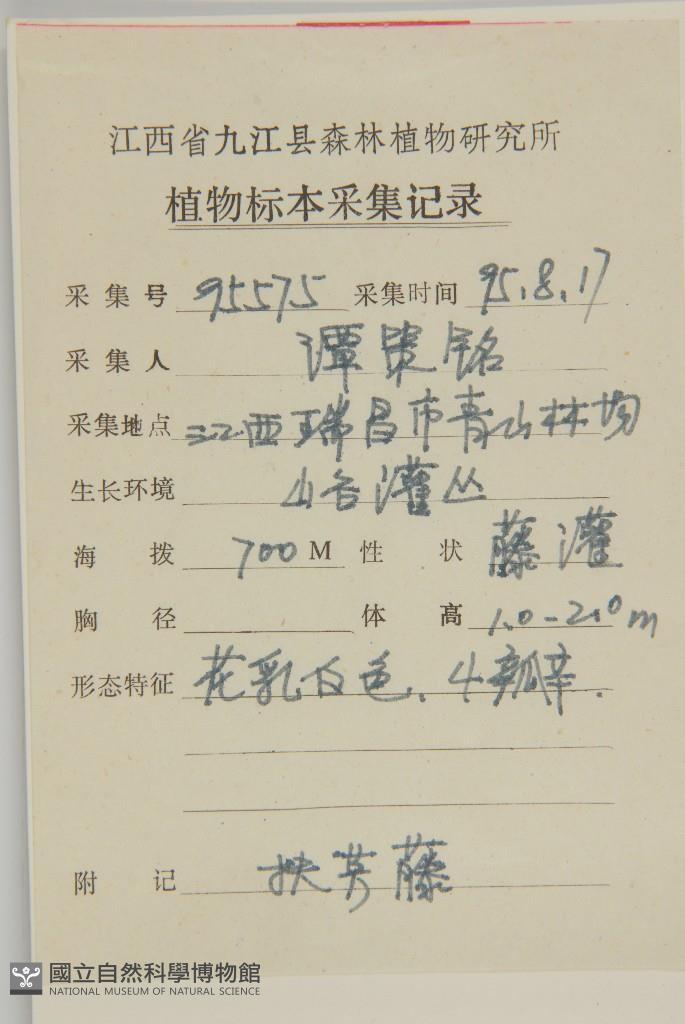 江西省九江县森林植物研究所
植物标本采集记录
采集号 95575 采集时间 95.8.17
采集人 谭策铭
采集地点 江西瑞昌市青山林场
生长环境 山谷灌丛
海拨 700 M 性状 藤灌
胸径 体高 1.0-2.0m
形态特征 花乳白色.4瓣.
附记 扶芳藤
國立自然科學博物館
NATIONAL MUSEUM OF NATURAL SCIENCE